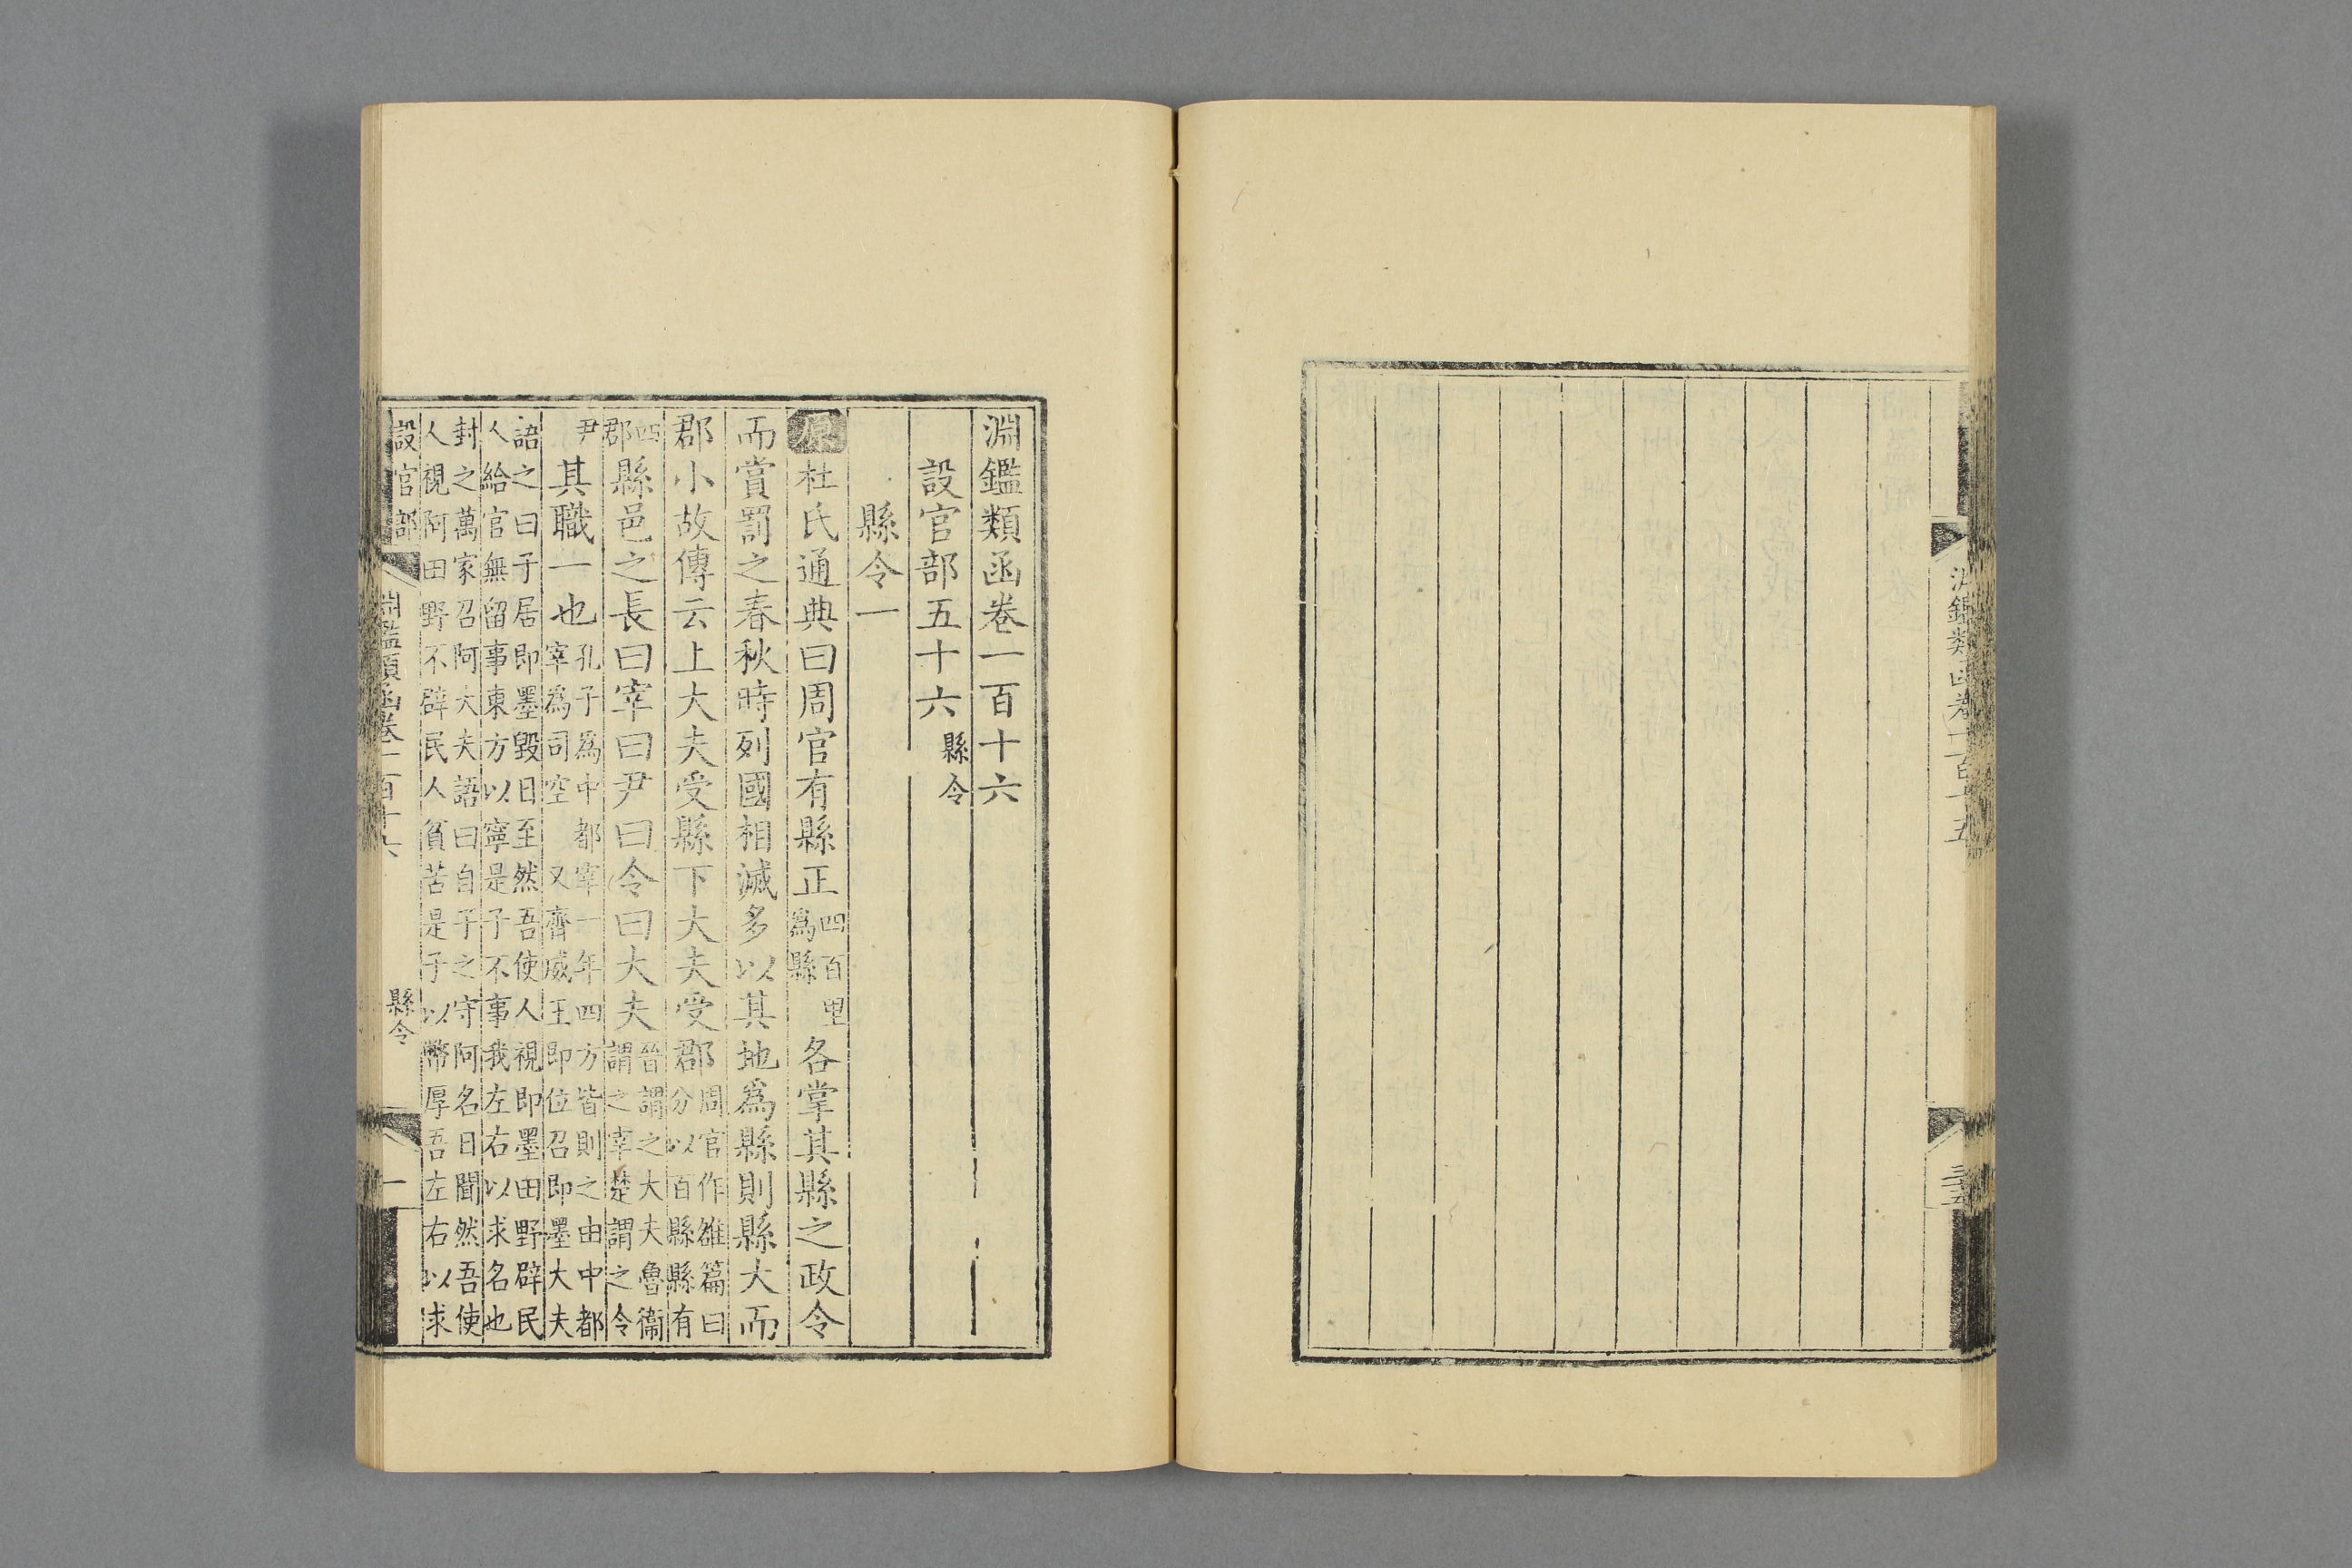 淵鑑類函卷一百十五
三十五
淵鑑類函卷一百十六
設官部五十六縣令
縣令一
原杜氏通典曰周官有縣正四百里爲縣各掌其縣之政令
而賞罰之春秋時列國相滅多以其地爲縣則縣大而
郡小故傳云上大夫受縣下大夫受郡周官作雒篇曰分以百縣縣有
四郡縣邑之長曰宰曰尹曰令曰大夫晉謂之大夫魯衞謂之宰楚謂之令
尹其職一也孔子爲中都宰一年四方皆則之由中都宰爲司空 又齊威王即位召即墨大夫
語之曰子居即墨毀日至然吾使人視即墨田野辟民
人給官無留事東方以寧是子不事我左右以求名也
封之萬家召阿大夫語曰自子之守阿名日聞然吾使
人視阿田野不辟民人貧苦是子以幣厚吾左右以求
設官部 淵鑑類函卷一百十六 縣令 一